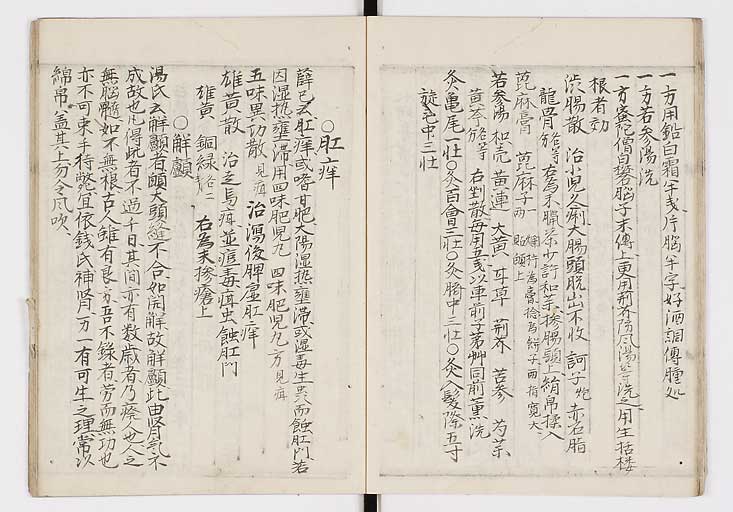 一方用鉛白霜半戔片腦半字好酒調傅腫処
一方苦参湯洗
一方蜜陀僧白礬腦子末傅上更用荊芥防風湯洗之用生括楼
根者効
渋腸散 治小児久痢大腸頭脱出不收 訶子炮 赤石脂
龍骨等 右為末臘茶少許和羊糝腸頭上絹帛揉入
萆麻膏 萆麻子一両 爛杵為膏捻為餅子両指寛大貼顖上
苦参湯 枳壳 黄連 大黄 甘草 荊芥 苦参 为薬
黄芩等 右剉散每用五戔以車前子茅艸同前薫洗
灸亀尾一壮○灸百會三壮○灸臍中三壮○灸入髪際五寸
旋毛中三壮
○肛痒
薛己云肛痒或嗜甘肥大陽湿热壅滞或湿毒生虫而蝕肛門若
因湿热壅滞用四味肥児丸 四味肥児丸方見疳
五味異功散見疳 治瀉後脾虛肛痒
雄黄散 治走馬疳並痘毒疳虫蝕肛門
雄黄 銅緑各二戔 右為末摻瘡上
○解顱
湯氏云解顱者頭大頭縫不合如開解故解顱此由腎氣不
成故也凡得此者不過千日其間亦有数歳者乃癈人也人之
無腦髓如不無根古人雖有良方吾不錄者勞而無功也
亦不可束手待斃宜依錢氏補腎方一有可生之理常以
綿帛蓋其上勿令風吹